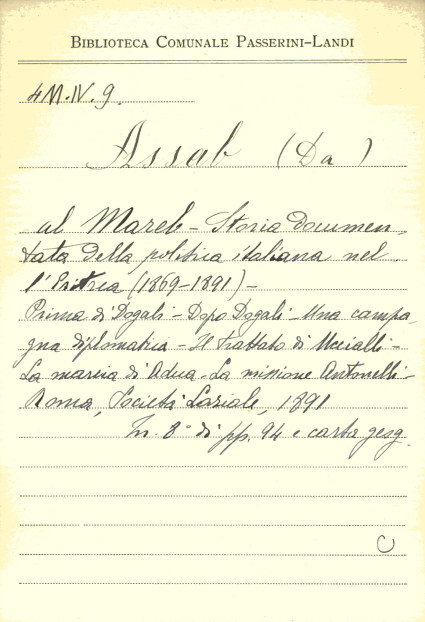 BIBLIOTECA COMUNALE PASSERINI-LANDI
4M.IV.9.
Assab (Da)
al Mareb - Storia documen-
tata della politica italiana nel-
l'Eritrea (1869-1891) -
Prima di Dogali - Dopo Dogali - Una campa-
gna diplomatica - Il trattato di Uccialli -
La marcia di Adua - La missione Antonelli -
Roma, Società Laziale, 1891
In 8° di pp. 94 e carta geog.
C